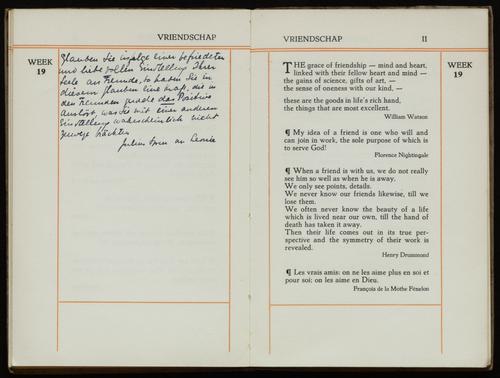 VRIENDSCHAP
WEEK
19
Glauben Sie infolge einer befriedeten
und liebevollen Einstellung Ihrer
Seele an Freunde, so haben Sie in
diesem Glauben eine Kraft, die in
den Freunden gerade das Positive
auslöst, was Sie mit einer anderen
Einstellung wahrscheinlich nicht
zuwege brächten.
Julius an
VRIENDSCHAP II
WEEK
19
THE grace of friendship — mind and heart,
linked with their fellow heart and mind —
the gains of science, gifts of art, —
the sense of oneness with our kind, —
these are the goods in life's rich hand,
the things that are most excellent.
William Watson
¶ My idea of a friend is one who will and
can join in work, the sole purpose of which is
to serve God!
Florence Nightingale
¶ When a friend is with us, we do not really
see him so well as when he is away.
We only see points, details.
We never know our friends likewise, till we
lose them.
We often never know the beauty of a life
which is lived near our own, till the hand of
death has taken it away.
Then their life comes out in its true per-
spective and the symmetry of their work is
revealed.
Henry Drummond
¶ Les vrais amis: on ne les aime plus en soi et
pour soi; on les aime en Dieu.
François de la Mothe Fénelon